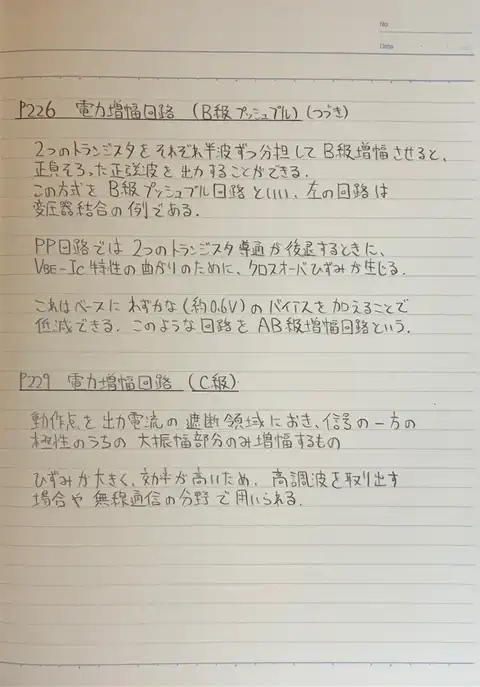 No
Date
P226 電力増幅回路 (B級プッシュプル) (つづき)
2つのトランジスタをそれぞれ半波ずつ分担してB級増幅させると、
正負そろった正弦波を出力することができる.
この方式をB級プッシュプル回路といい、左の回路は
変圧器結合の例である.
PP回路では2つのトランジスタ導通が後退するときに、
VBE-Ic特性の曲がりのために、クロスオーバひずみが生じる.
これはベースにわずかな(約0.6V)のバイアスを加えることで
低減できる. このような回路をAB級増幅回路という.
P229 電力増幅回路 (C級)
動作点を出力電流の遮断領域におき、信号の一方の
極性のうちの大振幅部分のみ増幅するもの
ひずみが大きく、効率が高いため、高調波を取り出す
場合や無線通信の分野で用いられる.